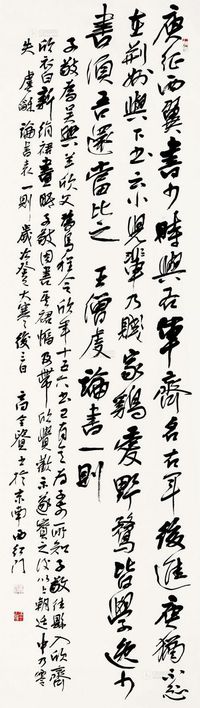 庾征西翼書少時與右軍齊名右軍後進庾猶不忿
在荊州與下書云小兒輩乃賤家雞愛野鶩皆學逸少
書須吾還當比之 王僧虔論書一則
子敬為吳興羊欣父為烏程令欣年十五六書已有意為子敬所知子敬往縣入欣齋
欣衣白新絹裙晝眠子敬因書其裙幅及帶欣覺歡樂遂寶之後以上朝廷中乃零
失 虞龢論書表一則 歲在癸大寒後三日 高書於京南西紅門